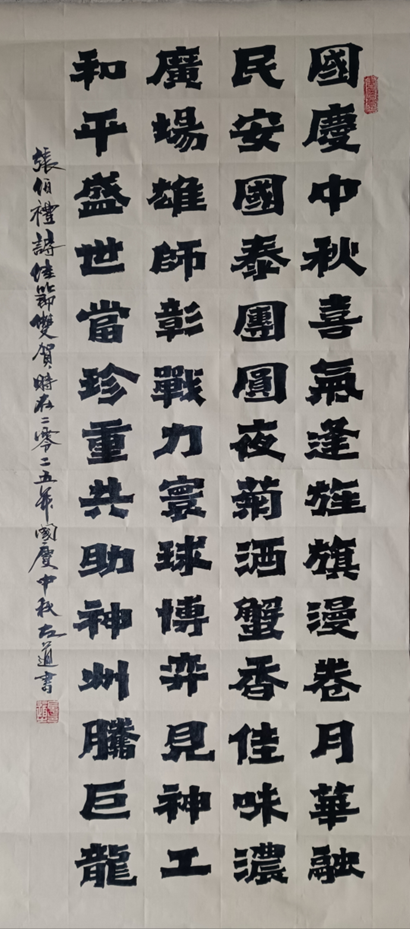 國慶中秋喜氣逢旌旗漫卷月華融
民安國泰團圓夜菊酒蟹香佳味濃
廣場雄師彰戰力寰球博弈見神工
和平盛世當珍重共助神州騰巨龍
張伯禮詩佳節雙賀時在二零二五年國慶中秋左道書